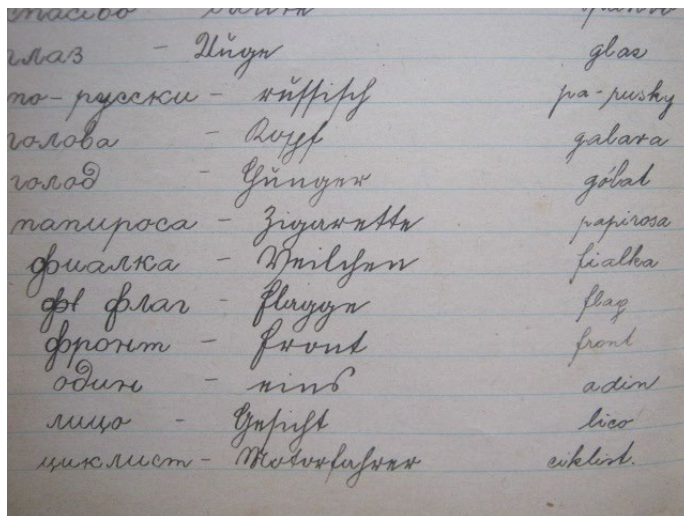 спасибо danke
глаз - Auge glas
по-русски - russisch pa-rusky
голова - Kopf galava
голод - Hunger gólat
папироса - Zigarette papirosa
фиалка - Veilchen fialka
фл флаг - Flagge flag
фронт - Front front
один - eins adin
лицо - Gesicht lico
циклист - Motorfahrer ciklist.